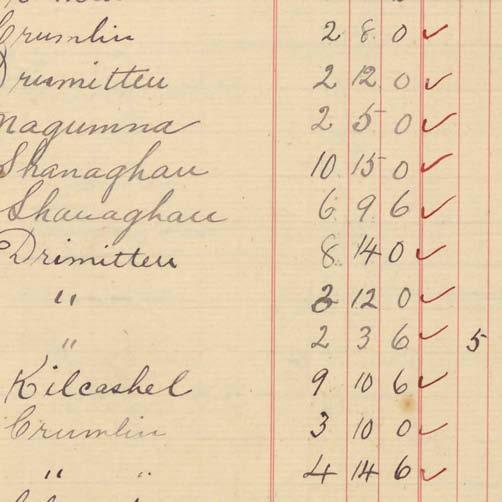 Crumlin 2 8 0 ✓
Drumitten 2 12 0 ✓
Magumna 2 5 0 ✓
Shanaghan 10 15 0 ✓
Shanaghan 6 9 6 ✓
Drimitten 8 14 0 ✓
" 2 12 0 ✓
" 2 3 6 ✓ 5
Kilcashel 9 10 6 ✓
Crumlin 3 10 0 ✓
" " 4 14 6 ✓